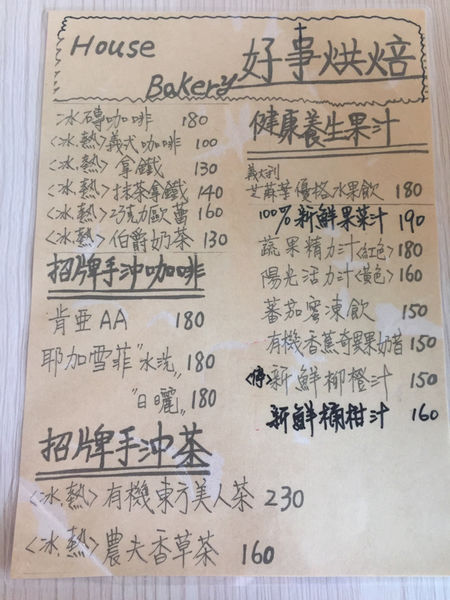 House
Bakery 好事烘焙
冰磚咖啡 180
<冰.熱>義式咖啡 100
<冰.熱> 拿鐵 130
<冰.熱>抹茶拿鐵 140
<冰.熱>巧克力歐蕾 160
<冰.熱>伯爵奶茶 130
招牌手沖咖啡
肯亞AA 180
耶加雪菲"水洗" 180
"日曬" 180
招牌手沖茶
<冰.熱>有機東方美人茶 230
<冰.熱>農夫香草茶 160
健康養生果汁
義大利
芝蔴葉優格水果飲 180
100%新鮮果菜汁 190
蔬果精力汁<紅色>180
陽光活力汁<黃色>160
蕃茄蜜凍飲 150
有機香蕉奇異果奶昔 150
<停>新鮮柳橙汁 150
新鮮桶柑汁 160